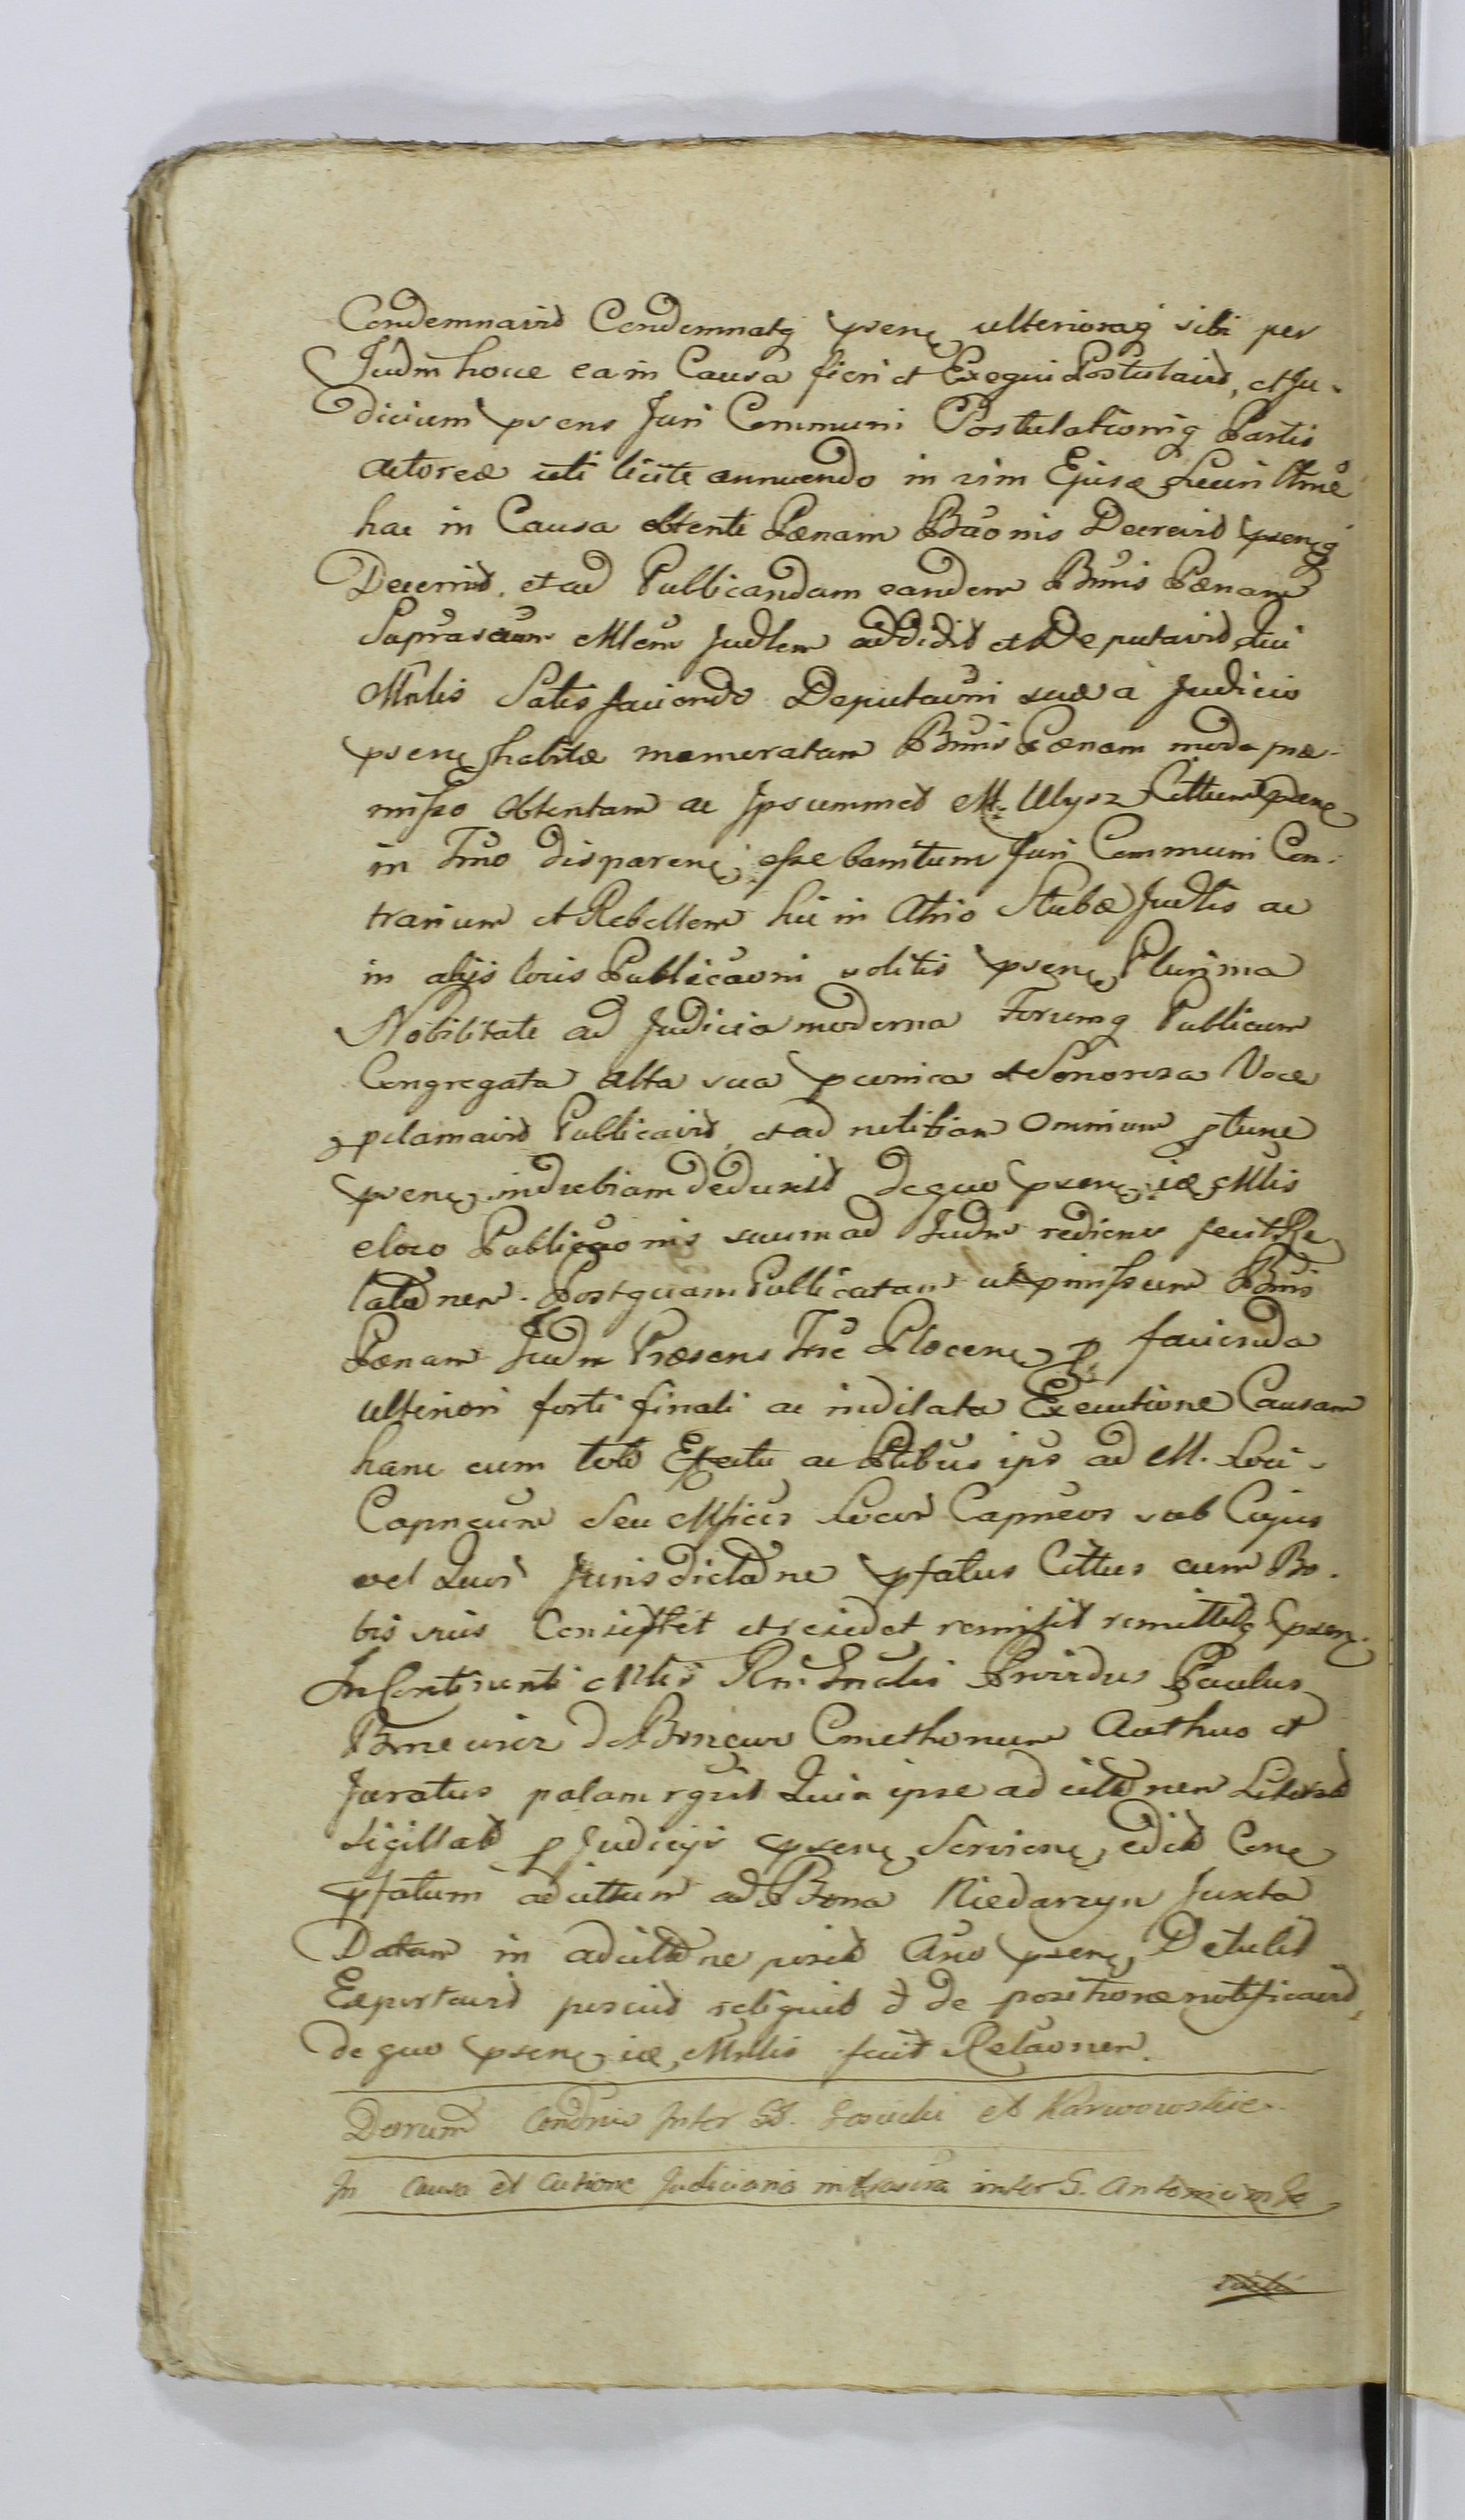 Condemnavit Condemnatq psens ulterioraq sibi per
Judm hocce ea in Causa fieri et Exequi Postulavit, et Ju-
dicium psens Juri Communi Postulationiq Partis
actoreæ uti licite annuendo in vim Ejusd Lucri
hac in Causa obtenti Pænam Bãonis Decrevit psenq
Decernit, et ad Publicandam eandem Bñnis Pænam
Mlem Judlem addidit et Deputavit, Qui
Mnlis Satisfaciendo Deputaõni suæ à Judicio
psens habitæ memoratam Bñnis Pænam modo præ-
misso Obtentam ac Ipsummet M. Ulysz Cittum psens
in Tño disparens, esse banitum Juri Communi Con-
trarium et Rebellem hic in Atrio Stubæ Judlis ac
in alijs locis Publicaõni solitis psens Plurima
Nobilitate ad Judicia moderna Forumq Publicum
Congregata alta sua pconica et Sonorosa Voce
pclamavit Publicavit, et ad notitiam Omnium ptunc
psens indubiam deduxit de quo psens iæ Mlis
e loco Publicãonis suum ad Judm rediens fecit Re
latõnem. Postquam Publicatam ut pmissum Bñnis
Pænam Judm Præsens Tre Plocens p facienda
ulteriori forti finali ac indilata Executione Causam
hanc cum toto Effectu ac Ptibus ips ad M. Loci
Capneum Seu Mficos Locor Capneos sub Cujus
vel Quor Jurisdictõne pfatus Cittus cum Bo-
bis suis Consistet et residet remisit remittitq psen.
In Continenti Mlis Rni Indlis Providus Paulus
de Cmethonum Authus et
Juratus palam rgvit Quia ipse ad cittõnem Literat
sigillat p Judicijs psens Serviens, edit Cone
pfatum ad cittum ad Bona Niedarzyn Juxta
Datam in ad cittõne posit Ano psens Detulit
Exportavit posuit reliquit et de positione notificavit,
de quo psens iæ Mnlis fecit Relaõnem.
Decrum Condnis Inter GG. et Karwowskie.
In Causa et Actione Judiciaria inter G. Antonium